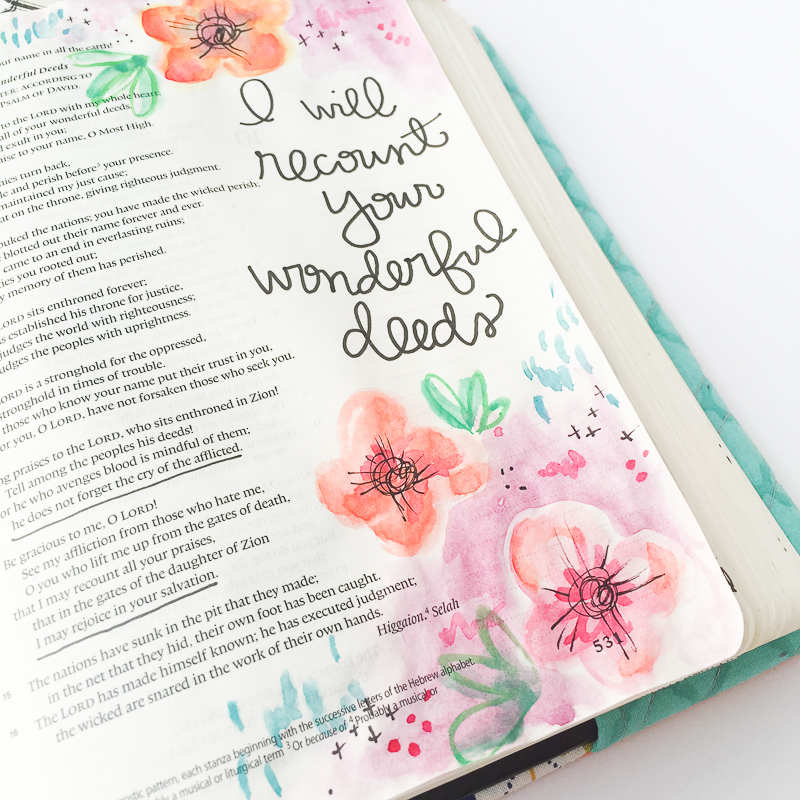 our name in all the earth!
nderful Deeds
TER: ACCORDING TO
PSALM OF DAVID.
to the LORD with my whole heart;
all of your wonderful deeds.
exult in you;
to your name, O Most High.
turn back,
and perish before³ your presence.
maintained my just cause;
at on the throne, giving righteous judgment.
the nations; you have made the wicked perish;
blotted out their name forever and ever.
came to an end in everlasting ruins;
you rooted out;
memory of them has perished.
LORD sits enthroned forever;
established his throne for justice,
judges the world with righteousness;
judges the peoples with uprightness.
LORD is a stronghold for the oppressed,
stronghold in times of trouble.
those who know your name put their trust in you,
or you, O LORD, have not forsaken those who seek you.
ng praises to the LORD, who sits enthroned in Zion!
Tell among the peoples his deeds!
or he who avenges blood is mindful of them;
he does not forget the cry of the afflicted.
Be gracious to me, O LORD!
See my affliction from those who hate me,
O you who lift me up from the gates of death,
that I may recount all your praises,
that in the gates of the daughter of Zion
I may rejoice in your salvation.
15 The nations have sunk in the pit that they made;
in the net that they hid, their own foot has been caught.
16 The LORD has made himself known; he has executed judgment;
the wicked are snared in the work of their own hands.
Higgaion.⁴ Selah
pattern, each stanza beginning with the successive letters of the Hebrew alphabet.
a musical or liturgical term ³ Or because of ⁴ Probably a musical or
531
I will
recount
your
wonderful
deeds